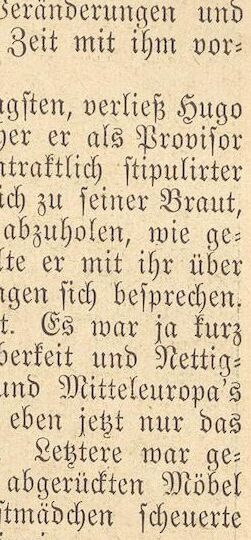 Veränderungen und
Zeit mit ihm vor-
gsten, verließ Hugo
er er als Provisor
ntraktlich stipulirter
ich zu seiner Braut,
abzuholen, wie ge-
lte er mit ihr über
ngen sich besprechen.
t. Es war ja kurz
berkeit und Nettig-
und Mitteleuropa's
eben jetzt nur das
Letztere war ge-
abgerückten Möbel
stmädchen scheuerte